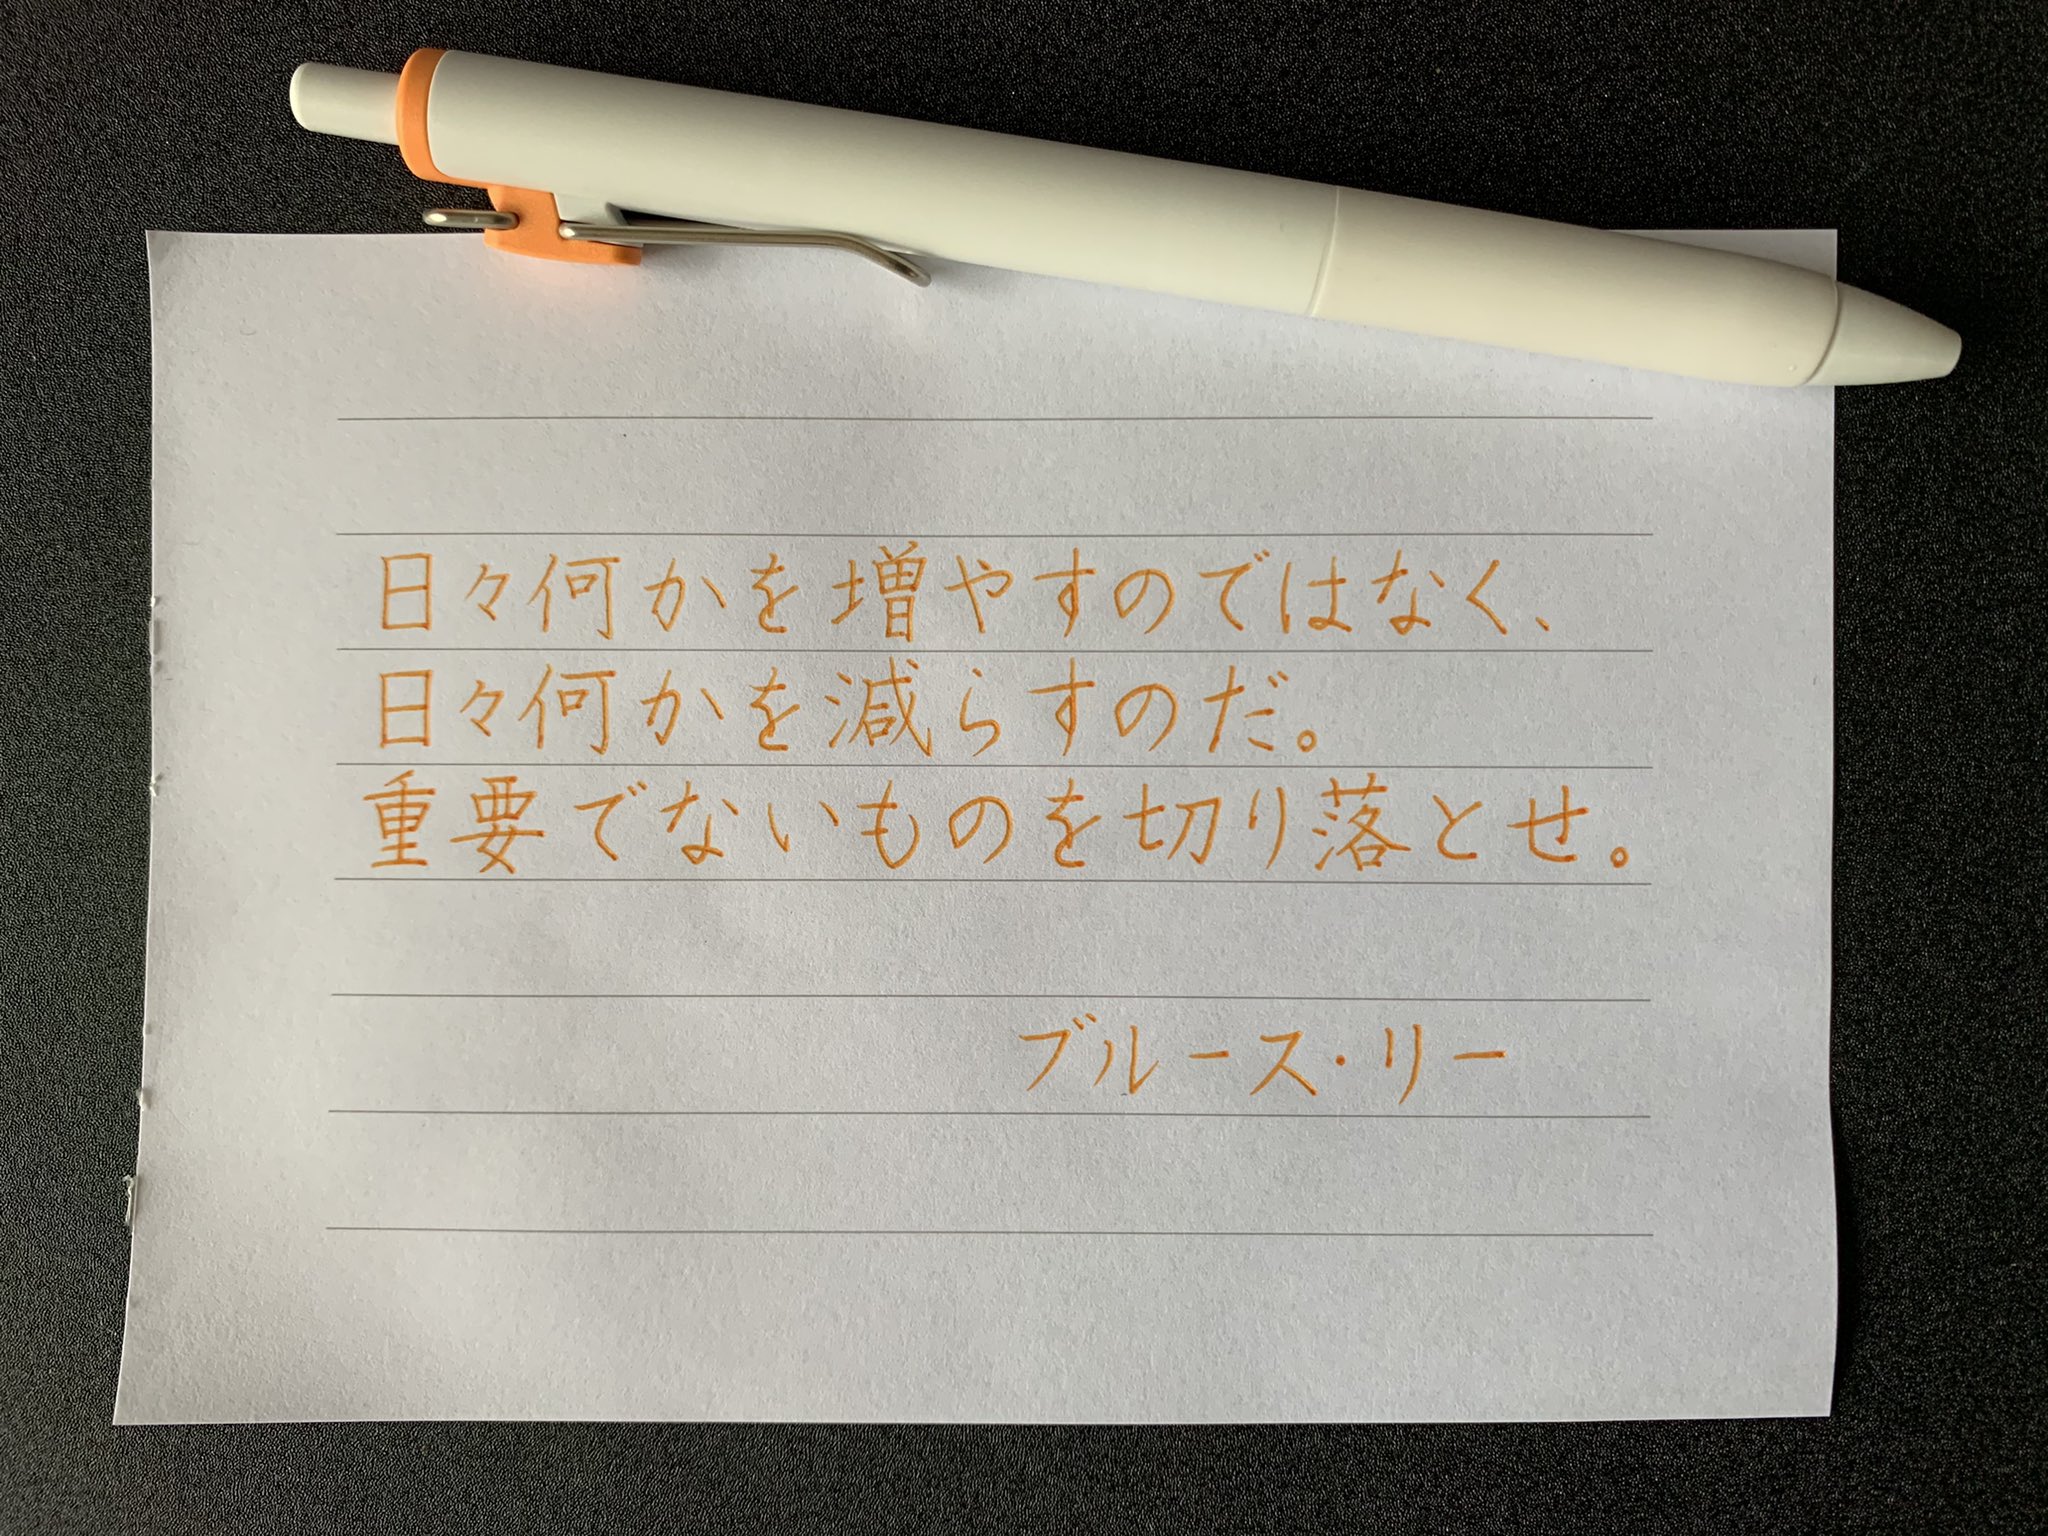 日々何かを増やすのではなく、
日々何かを減らすのだ。
重要でないものを切り落とせ。
ブルース・リー